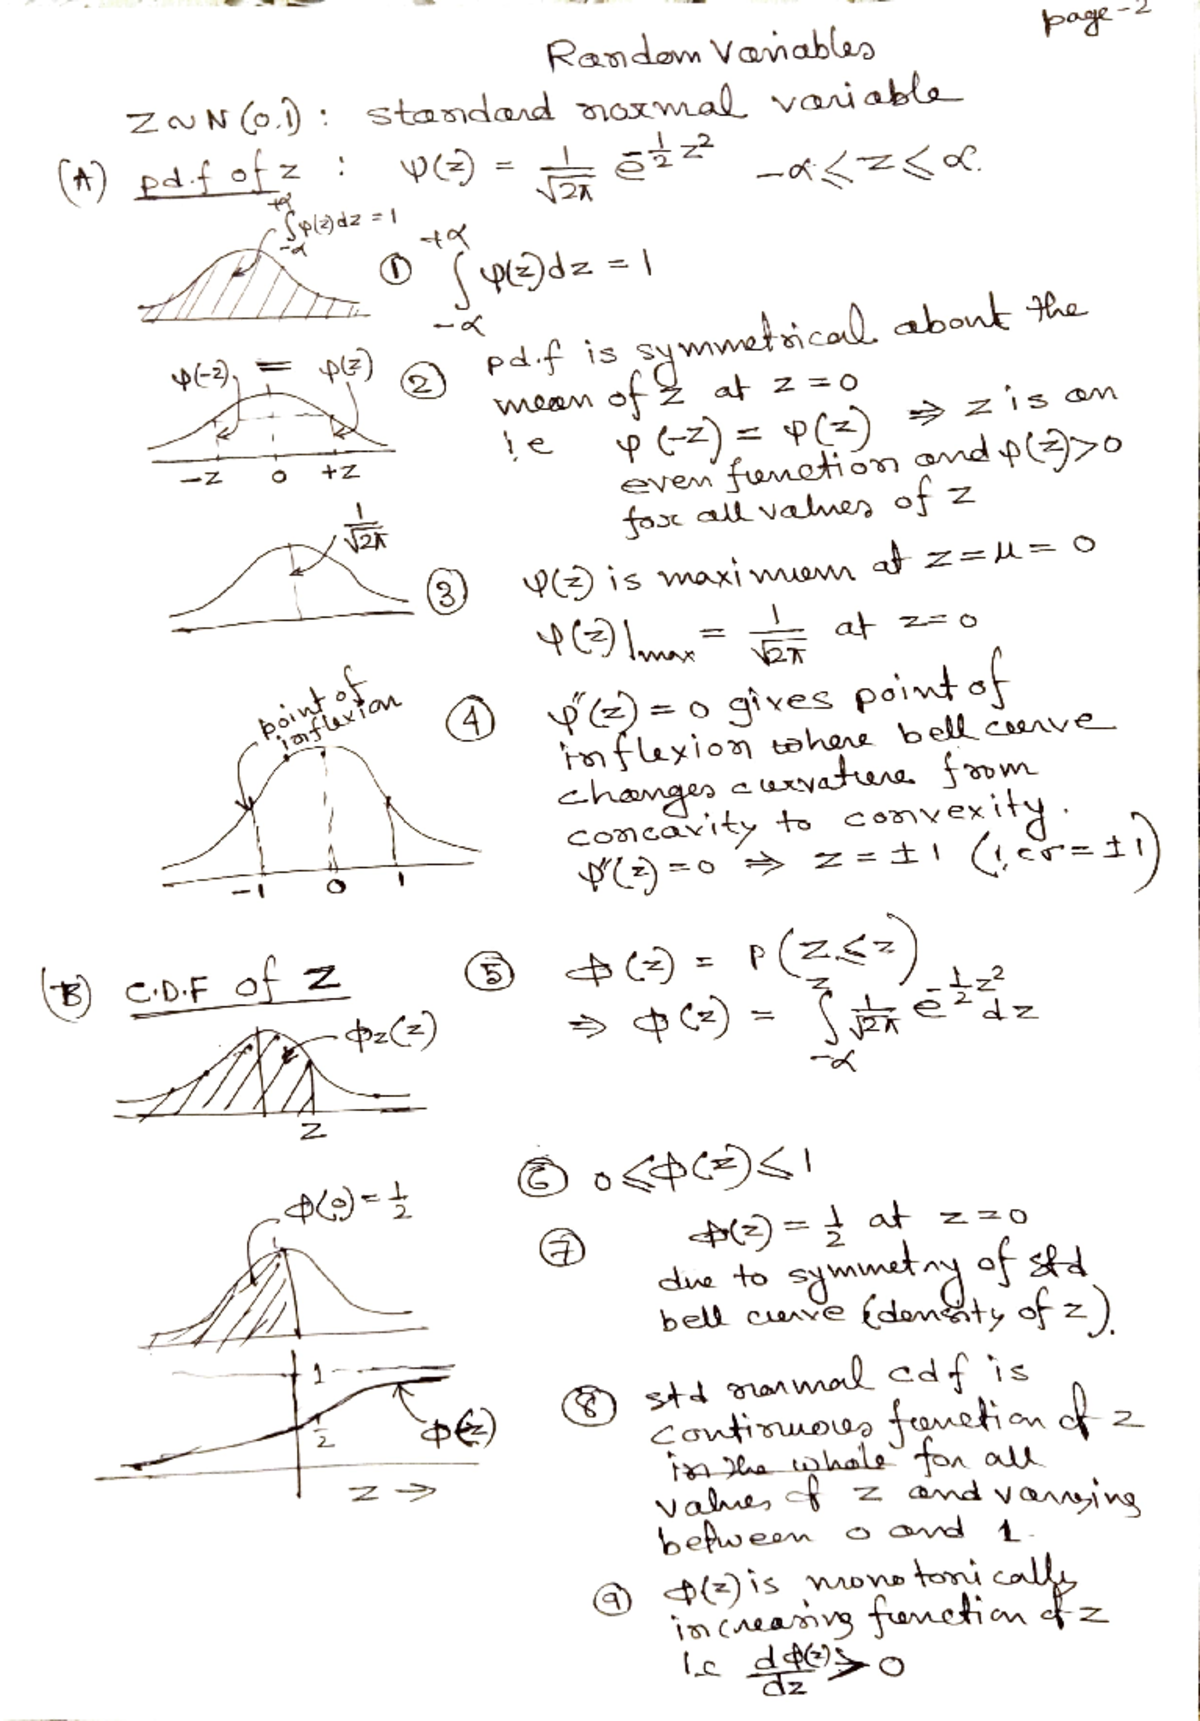 page-2
Random Variables
Z ~ N(0,1) : standard normal variable
(A) pd.f of z : φ(z) = 1/√2π e^-1/2 z² -α ≤ z ≤ α.
+α ∫ -α φ(z)dz = 1
① +α ∫ -α φ(z)dz = 1
φ(-z) = φ(z)
② pd.f is symmetrical about the
mean of z at z = 0
i.e φ(-z) = φ(z) ⇒ z is an
even function and φ(z)>0
for all values of z
-z 0 +z
1/√2π
③ φ(z) is maximum at z = μ = 0
φ(z)|max = 1/√2π at z=0
point of
inflexion
④ φ''(z) = 0 gives point of
inflexion where bell curve
changes curvature from
concavity to convexity.
φ''(z) = 0 ⇒ z = ±1 (i.e σ = ±1)
-1 0 1
(B) C.D.F of Z
⑤ Φ(z) = P(Z ≤ z)
⇒ Φ(z) = z ∫ -α 1/√2π e^-1/2 z² dz
Φz(z)
z
⑥ 0 ≤ Φ(z) ≤ 1
Φ(0) = 1/2
⑦ Φ(z) = 1/2 at z=0
due to symmetry of std
bell curve (density of z).
1
1/2
Φ(z)
z →
⑧ std normal cdf is
continuous function of z
in the whole for all
values of z and varying
between 0 and 1.
⑨ Φ(z) is monotonically
increasing function of z
i.e dΦ(z)/dz > 0